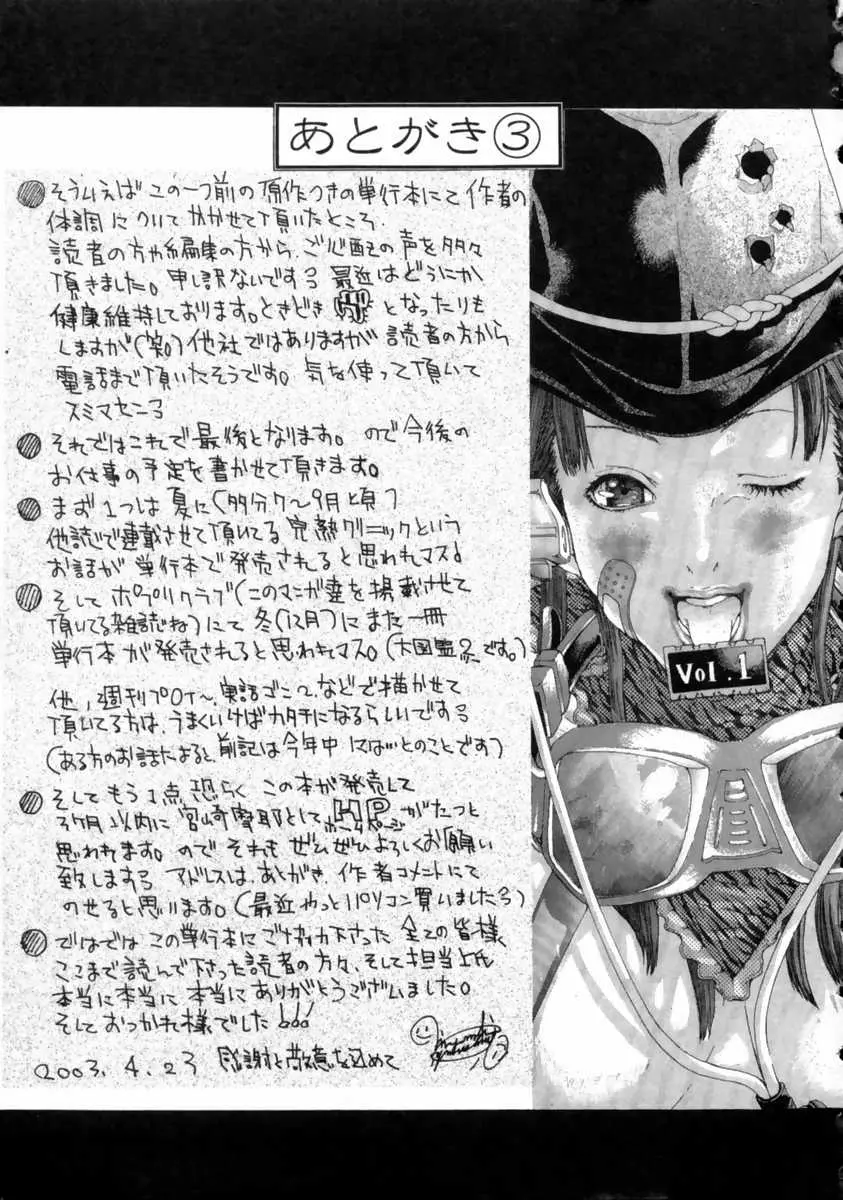 あとがき③
そういえばこの一つ前の原作つきの単行本にて作者の
体調についてかかせて頂いたところ、
読者の方や編集の方から、ご心配の声を多々
頂きました。申し訳ないです 最近はどうにか
健康維持しております。ときどき となったりも
しますが(笑)他社ではありますが読者の方から
電話まで頂いたそうです。気を使って頂いて
スミマセン
それではこれで最後となります。ので今後の
お仕事の予定を書かせて頂きます。
まず1つは夏に(多分7~9月頃)
他誌で連載させて頂いてる 完熟クリニックという
お話が単行本で発売されると思われマス
そしてポプリクラブ(このマンガ達を掲載させて
頂いてる雑誌ね)にて冬(12月)にまた一冊
単行本が発売されると思われマス。 です。)
他、週刊プロ 実話 などで描かせて
頂いてる方は、うまくいけばカタチになるらしいです
(ある方のお話によると、前記は今年中 とのことです)
そしてもう1点 恐らく この本が発売して
3ヶ月以内に宮崎摩耶としてHPホームページがたつと
思われます。ので それも ぜひぜひよろしくお願い
致します アドレスは、あとがき、作者コメントにて
のせると思います。(最近やっとパソコン買いました)
ではでは この単行本にご協力下さった 全ての皆様、
ここまで読んで下さった読者の方々、そして担当 氏
本当に本当に本当にありがとうございました。
そしておつかれ様でした!!!
2003.4.23 感謝と敬意を込めて
Vol.1